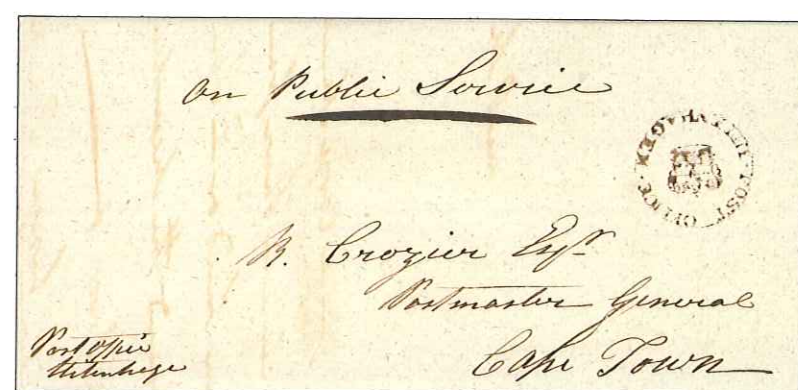 On Public Service
UITENHAGEN POST OFFICE
R. Crozier Esqr
Postmaster General
Cape Town
Post Office
Uitenhage